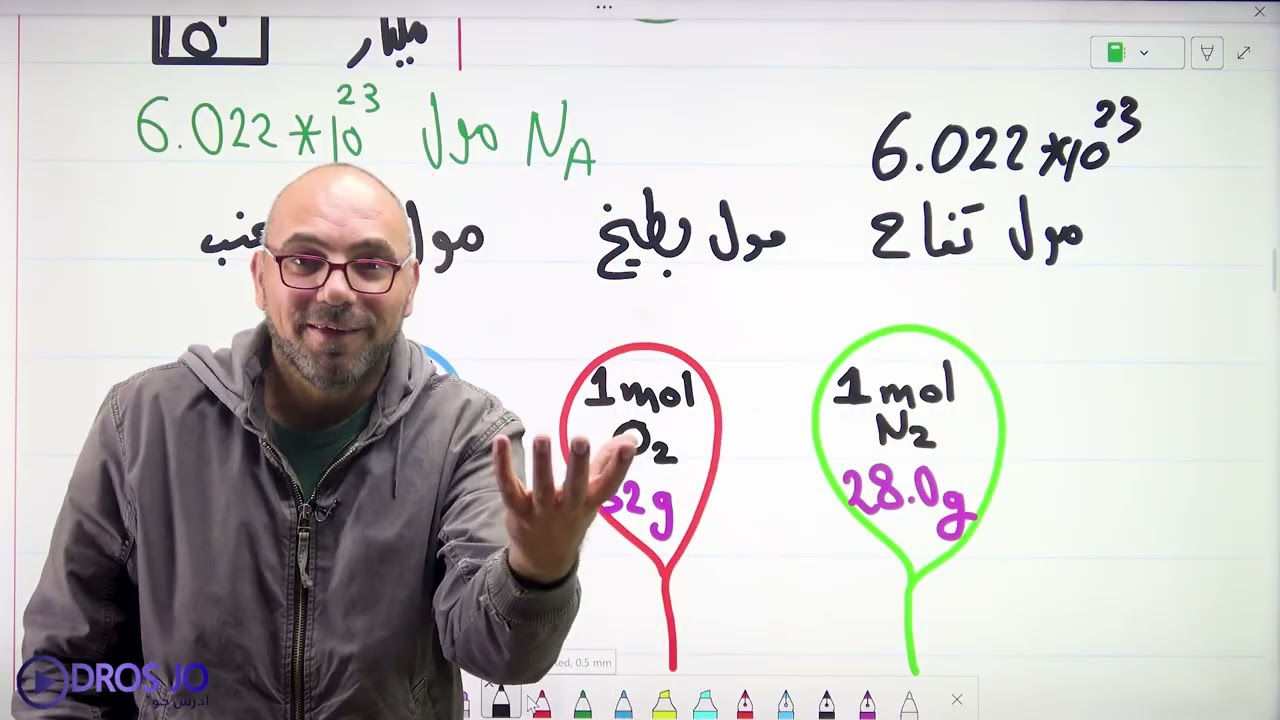 مليار
6.022*10²³ مول N_A
6.022*10²³
مول تفاح
مول بطيخ
مول
1 mol
O₂
32g
1 mol
N₂
28.0g
Red, 0.5 mm
DROS JO
ادرس جو